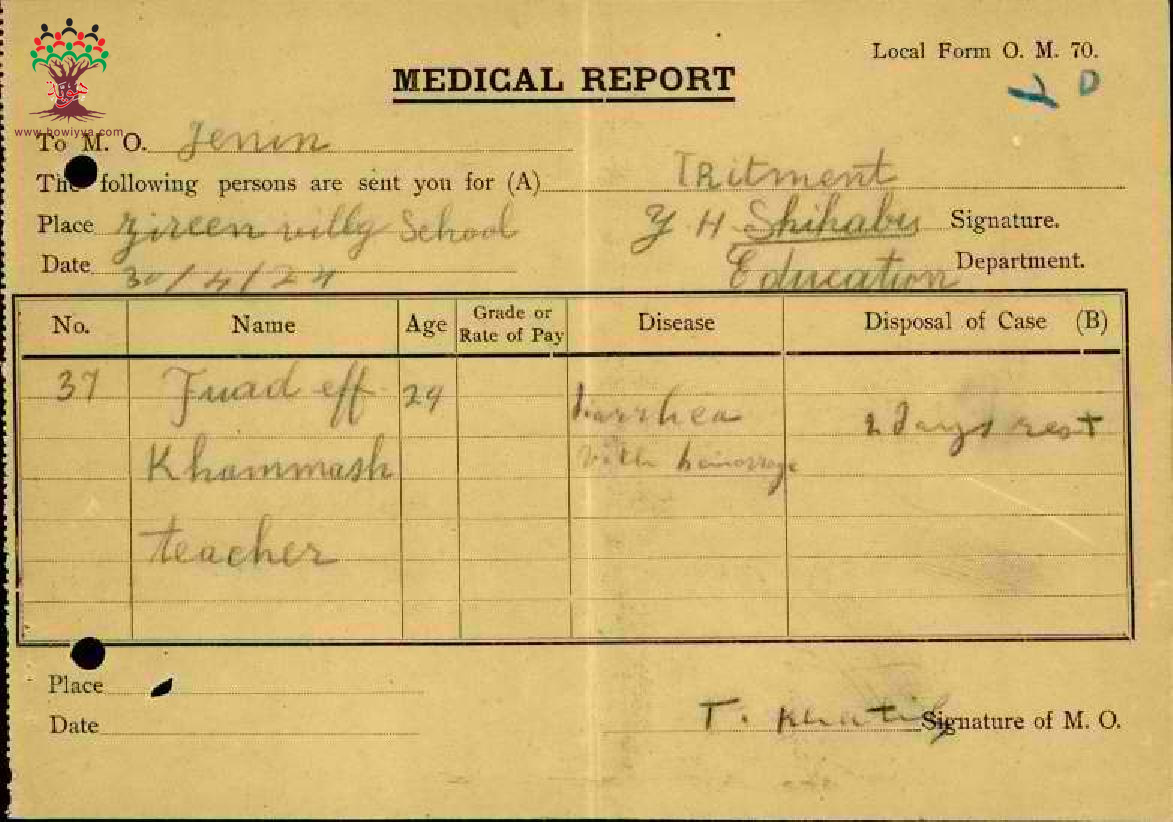 Local Form O. M. 70.
MEDICAL REPORT
D
www.howiyya.com
To M. O. Jenin
The following persons are sent you for (A) TRitment
Place Zireen villg School Y. H. Shihabi Signature.
Date 30/4/24 Education Department.
No. Name Age Grade or Rate of Pay Disease Disposal of Case (B)
37 Fuad eff. 29 diarrhea 2 days rest
Khammash with hemorrage
teacher
Place
Date
T. Khatib Signature of M. O.